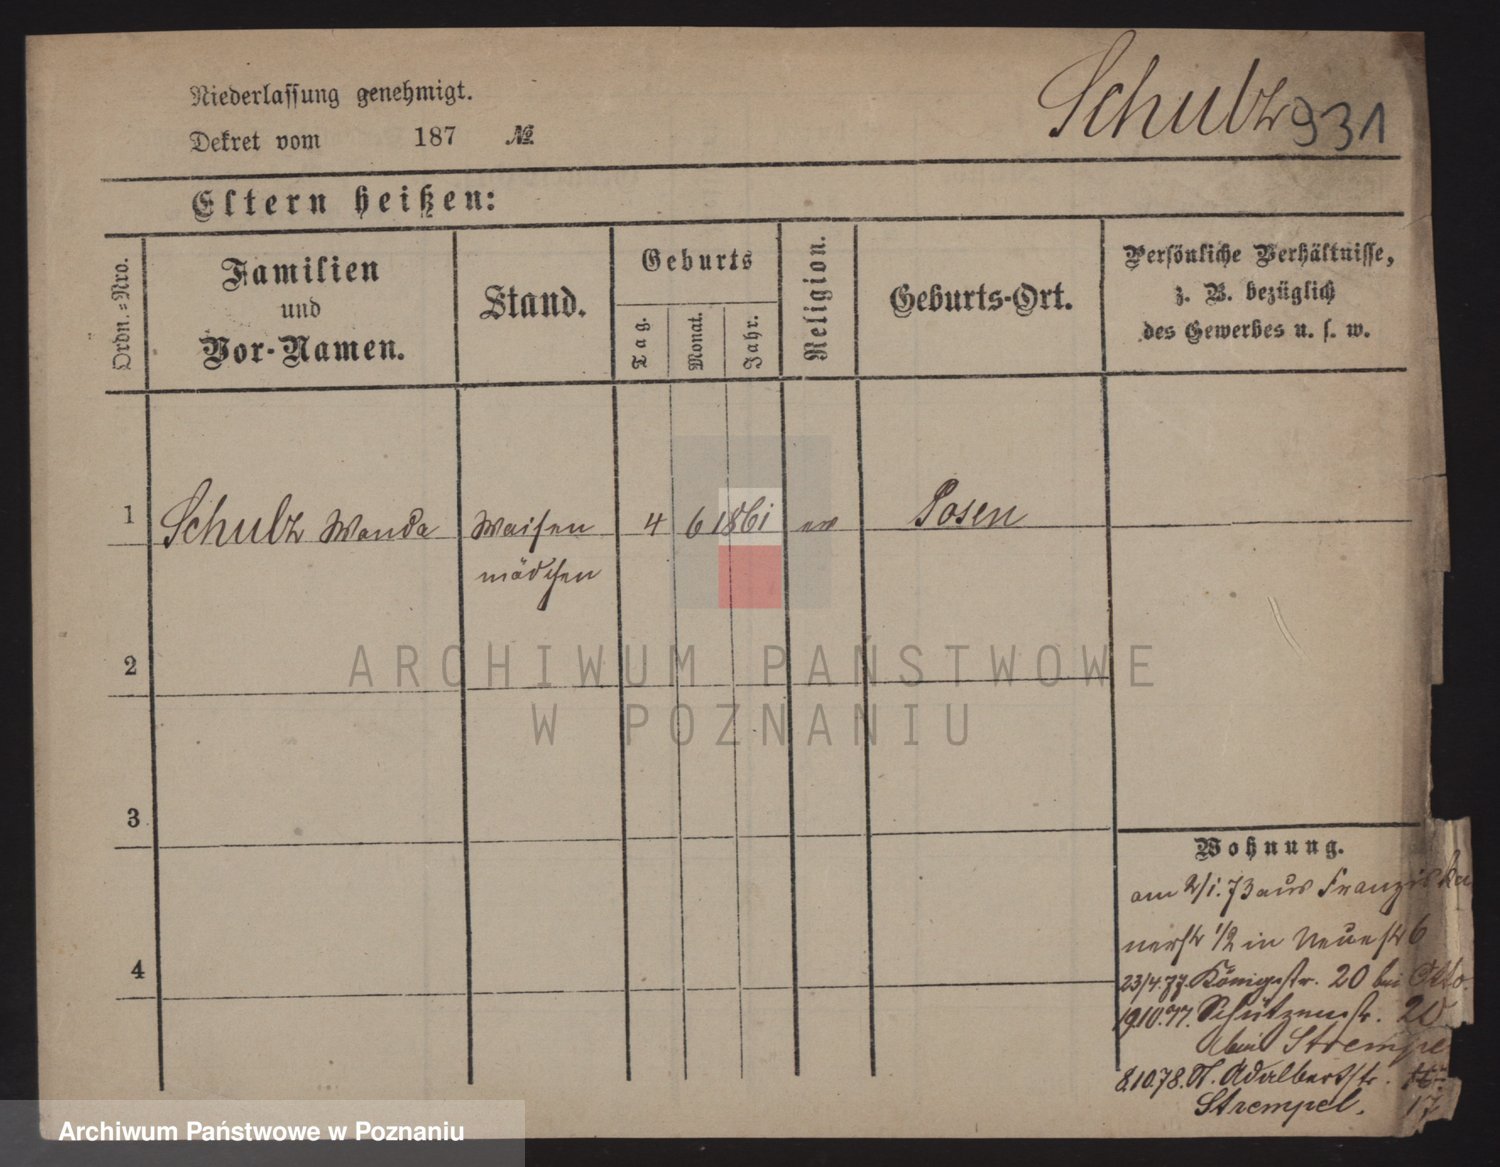 Niederlassung genehmigt.
Dekret vom 187 №
Schulz 931
Eltern heißen:
Ordn.-Nro.
Familien
und
Vor-Namen.
Stand.
Geburts
Tag.
Monat.
Jahr.
Religion.
Geburts-Ort.
Persönliche Verhältnisse,
z. B. bezüglich
des Gewerbes u. s. w.
1 Schulz Wanda Waisen 4 6 1861 ev Posen
mädchen
2
3
4
Wohnung.
am 2/1.73 aus Franziska
nerstr 1/2 in Neuestr 6
23/4.77. Königsstr. 20 bei Otto.
19.10.77. Schützenstr. 20
bei Strempel
8.10.78. St. Adalbertstr.
Strempel. 17
ARCHIWUM PAŃSTWOWE
W POZNANIU
Archiwum Państwowe w Poznaniu